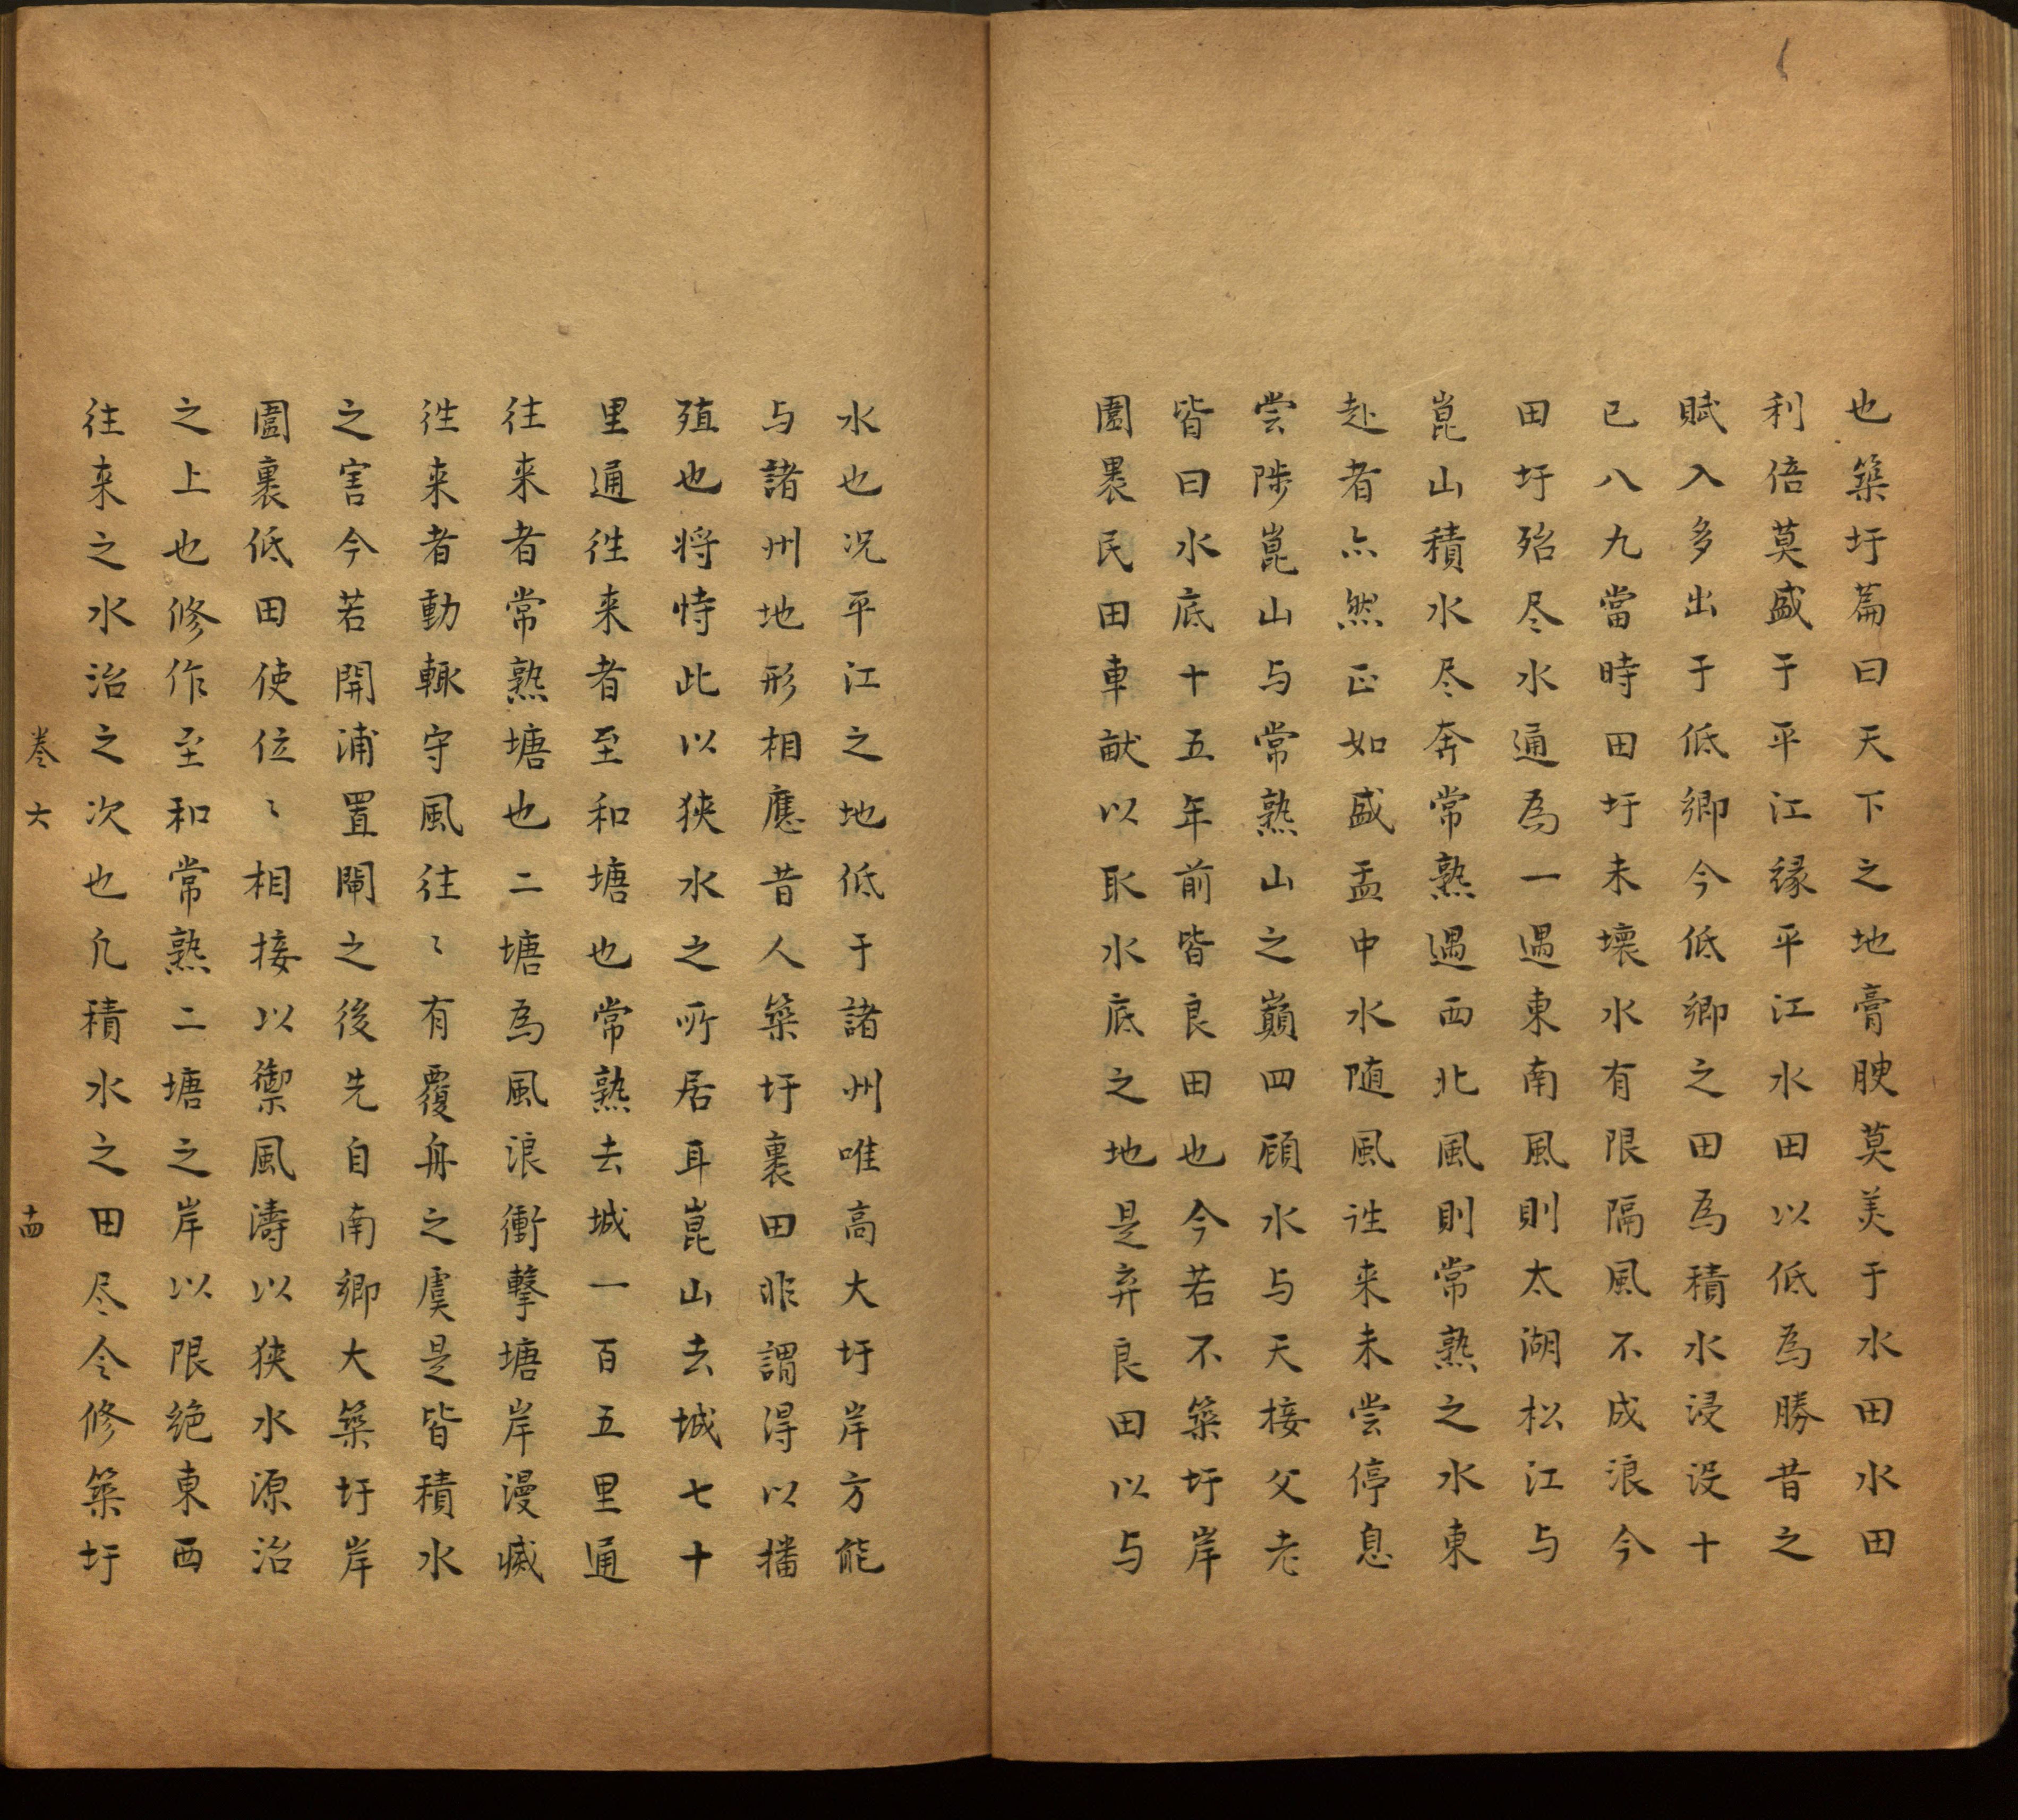 也築圩篇曰天下之地膏腴莫美于水田水田
利倍莫盛于平江縁平江水田以低為勝昔之
賦入多出于低鄉今低鄉之田為積水浸没十
已八九當時田圩未壞水有限隔風不成浪今
田圩殆尽水通為一遇東南風則太湖松江与
崑山積水尽奔常熟遇西北風則常熟之水東
赴者亦然正如盛盂中水随風徃来未嘗停息
嘗陟崑山与常熟山之巔四顧水与天接父老
皆曰水底十五年前皆良田也今若不築圩岸
圍褁民田車畎以取水底之地是弃良田以与
水也况平江之地低于諸州唯高大圩岸方能
与諸州地形相應昔人築圩裏田非謂得以播
殖也将恃此以狭水之所居耳崑山去城七十
里通徃来者至和塘也常熟去城一百五里通
往来者常熟塘也二塘為風浪衝擊塘岸漫滅
徃来者動輒守風往〻有覆舟之虞是皆積水
之害今若開浦置閘之後先自南鄉大築圩岸
圍裏低田使位〻相接以禦風濤以狭水源治
之上也修作至和常熟二塘之岸以限絶東西
往来之水治之次也凢積水之田尽令修築圩
卷六
十四